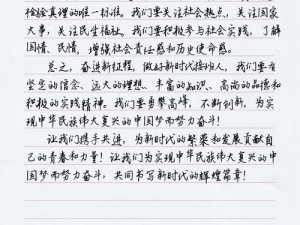 检验真理的唯一标准。我们要关注社会热点，关注国家
大事，关注民生福祉。我们要积极参与社会实践，了解
国情、民情，增强社会责任感和历史使命感。
总之，奋进新征程，做好新时代接班人，我们要有
坚定的信念、远大的理想、丰富的知识、高尚的品德和
积极的实践精神。我们要勇攀高峰，不断创新，为实
现中华民族伟大复兴的中国梦而努力奋斗！
让我们携手共进，为新时代的繁荣和发展贡献自
己的青春和力量！让我们为实现中华民族伟大复兴的中
国梦而努力奋斗，共同书写新时代的辉煌篇章！